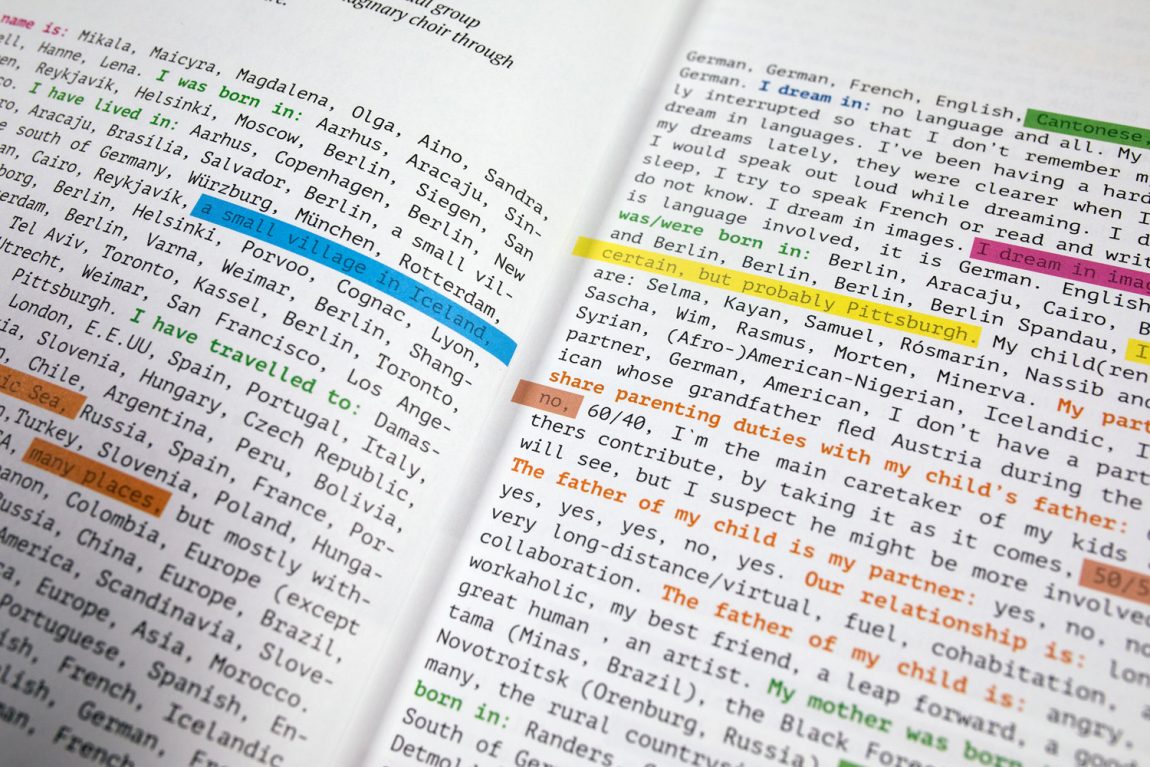 al group
aginary choir through
name is: Mikala, Maicyra, Magdalena, Olga, Aino, Sandra,
ell, Hanne, Lena. I was born in: Aarhus, Aracaju, Sin-
en, Reykjavík, Helsinki, Moscow, Berlin, Siegen, San
co. I have lived in: Aarhus, Copenhagen, Berlin, New
ro, Aracaju, Brasília, Salvador, Berlin, a small vil-
e south of Germany, Würzburg, München, Rotterdam,
an, Cairo, Reykjavík, a small village in Iceland,
borg, Berlin, Helsinki, Porvoo, Cognac, Lyon,
erdam, Berlin, Varna, Weimar, Berlin, Shang-
Tel Aviv, Toronto, Kassel, Berlin, Toronto,
Utrecht, Weimar, San Francisco, Los Ange-
Pittsburgh. I have travelled to: Damas-
London, E.E.UU, Spain, Portugal, Italy,
ia, Slovenia, Hungary, Czech Republic,
Chile, Argentina, Peru, Bolivia,
ic Sea, Russia, Spain, France, Por-
Turkey, Slovenia, Poland, Hunga-
CA, many places, but mostly with-
anon, Colombia, Europe (except
Russia, China, Europe, Brazil,
America, Scandinavia, Slove-
ca, Europe, Asia, Morocco.
Portuguese, Spanish, En-
ish, French, Icelandic
glish, German, Fre
man, French
German, German, French, English, Cantonese,
German. I dream in: no language and all. My
ly interrupted so that I don't remember m
dream in languages. I've been having a hard
my dreams lately, they were clearer when I
I would speak out loud while dreaming. I d
sleep, I try to speak French or read and writ
do not know. I dream in images. I dream in imag
is language involved, it is German. English
was/were born in: Berlin, Aracaju, Cairo, B
and Berlin, Berlin, Berlin, Berlin Spandau, I
certain, but probably Pittsburgh. My child(ren
are: Selma, Kayan, Samuel, Rósmarín, Nassib and
Sascha, Wim, Rasmus, Morten, Minerva. My part
Syrian, (Afro-)American-Nigerian, Icelandic, I
partner, German, American, I don't have a part
ican whose grandfather fled Austria during the
share parenting duties with my child's father:
no, 60/40, I'm the main caretaker of my kids
thers contribute, by taking it as it comes, 50/5
will see, but I suspect he might be more involved
The father of my child is my partner: yes, no, no
yes, yes, yes, no, yes. Our relationship is: lon
very long-distance/virtual, fuel, cohabitation, a
collaboration. The father of my child is: angry,
workaholic, my best friend, a leap forward, a good
great human , an artist. My mother was born
tama (Minas, Brazil), the Black Fores
Novotroitsk (Orenburg, Russia)
many, the rural countrysi
born in: Randers,
South of Ger
Detmol